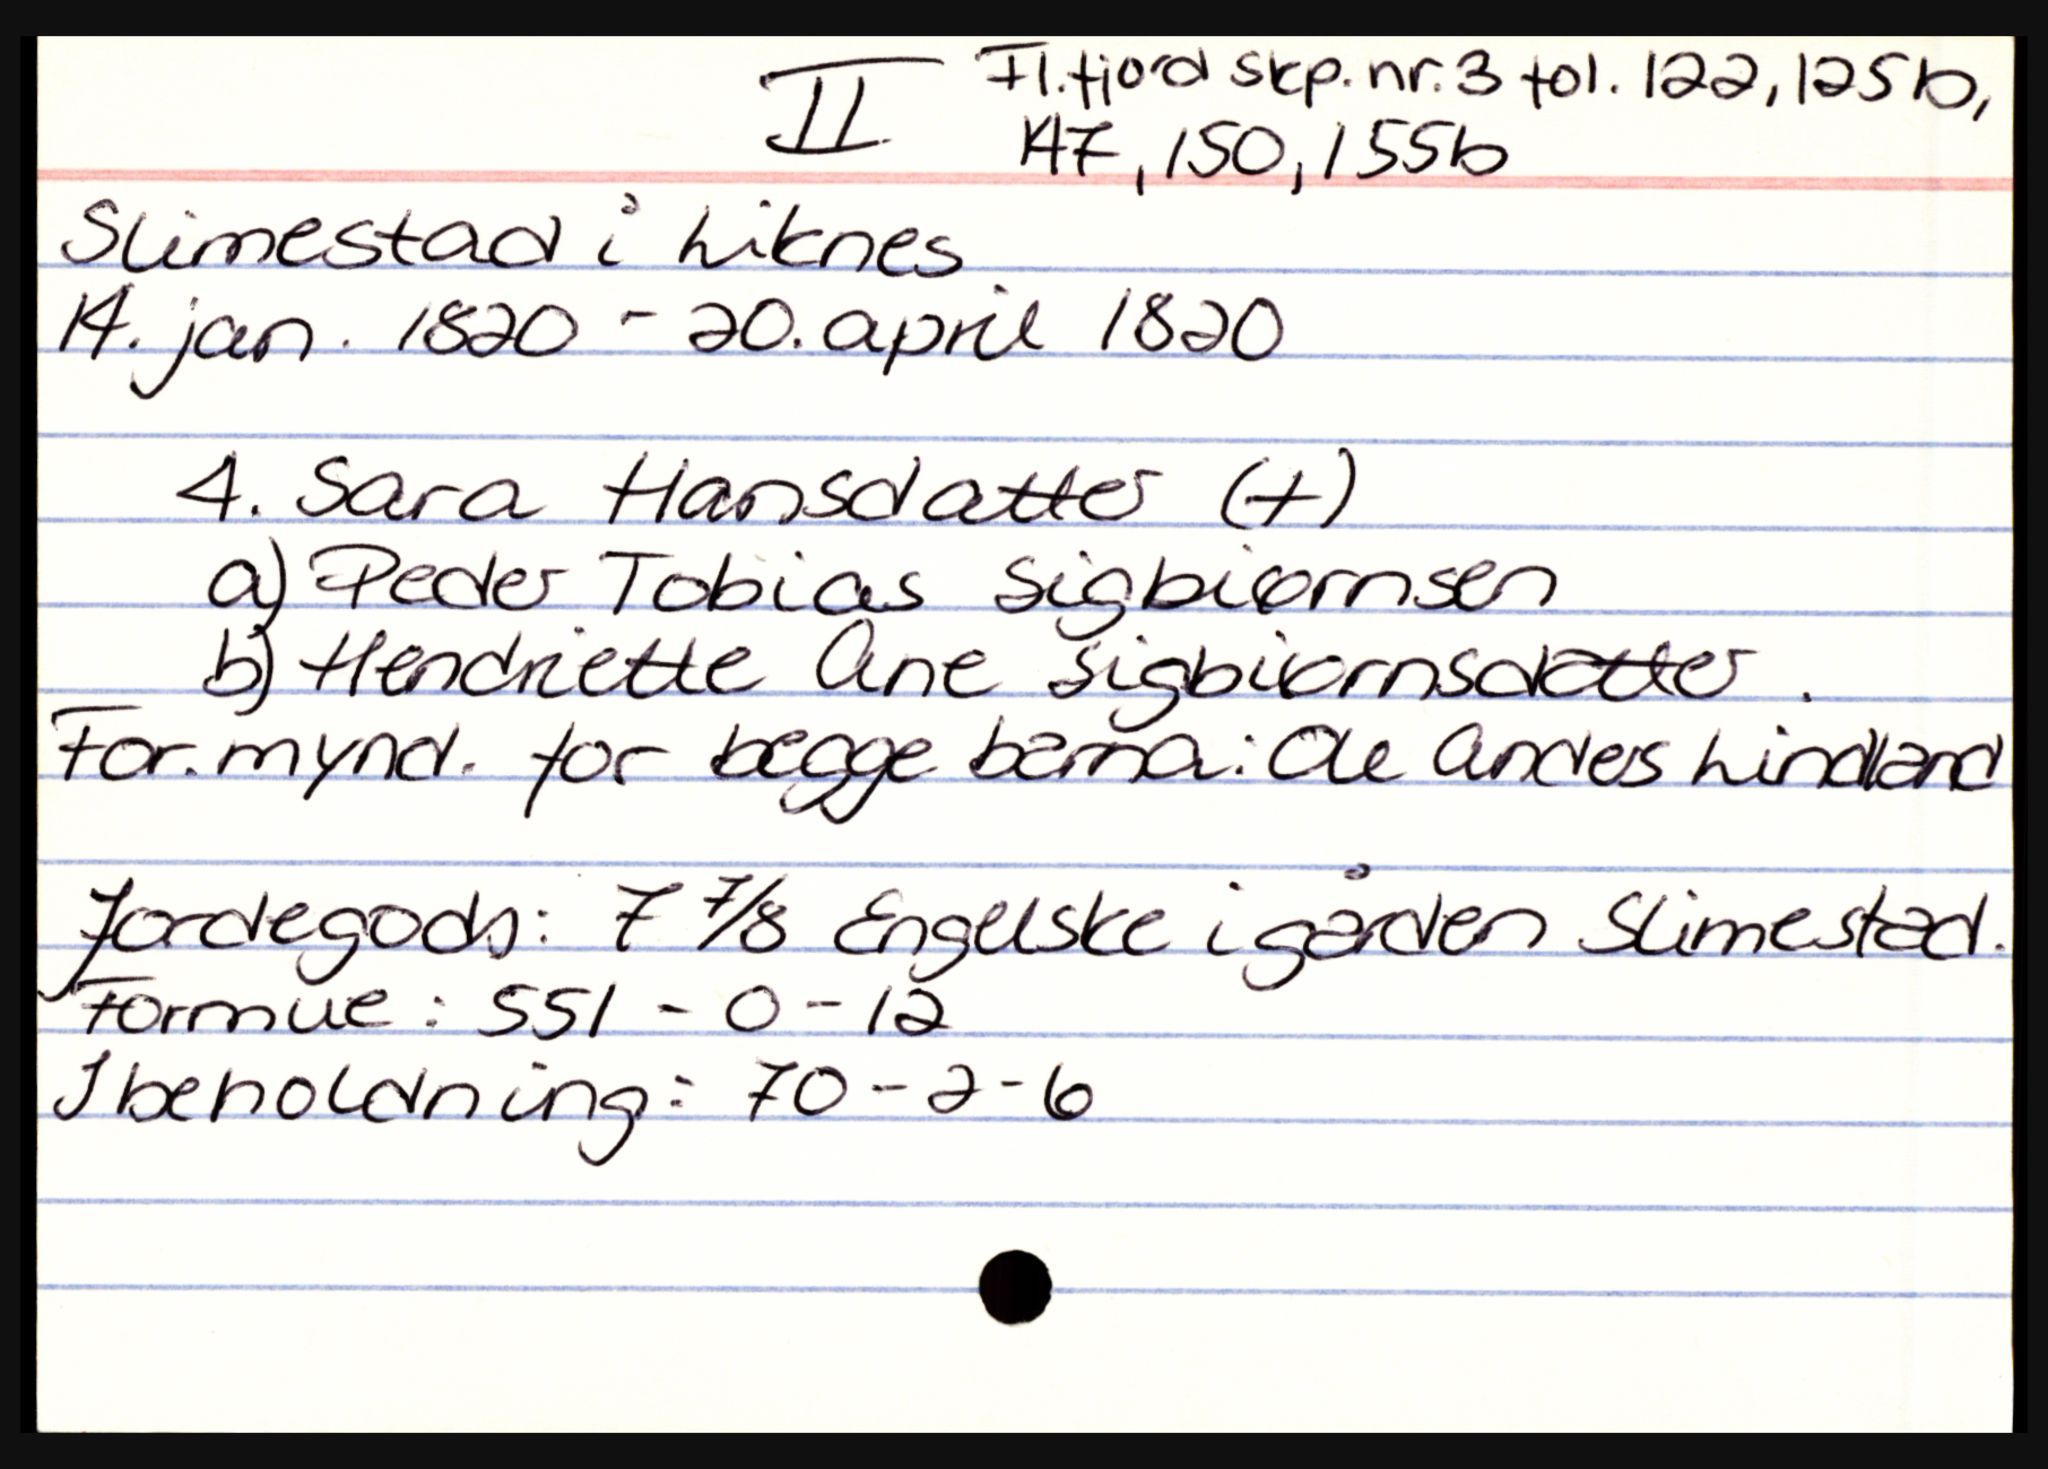 II Fl.fjord skp. nr. 3 fol. 122, 125b,
147, 150, 155b
Slimestad i Liknes
14. jan. 1820 - 20. april 1820
4. Sara Hansdatter (+)
a) Peder Tobias Sigbiørnsen
b) Hendriette Ane Sigbiørnsdatter.
For.mynd. for begge barna: Ole Anders Lindland
Jordegods: 7 7/8 Engelske i gården Slimestad.
Formue: 551 - 0 - 12
I beholdning: 70 - 2 - 6